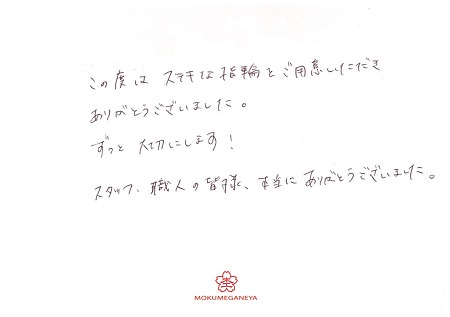 この度は ステキな指輪をご用意いただき
ありがとうございました。
ずっと 大切にします!
スタッフ、職人の皆様、本当に ありがとうございました。
MOKUMEGANEYA